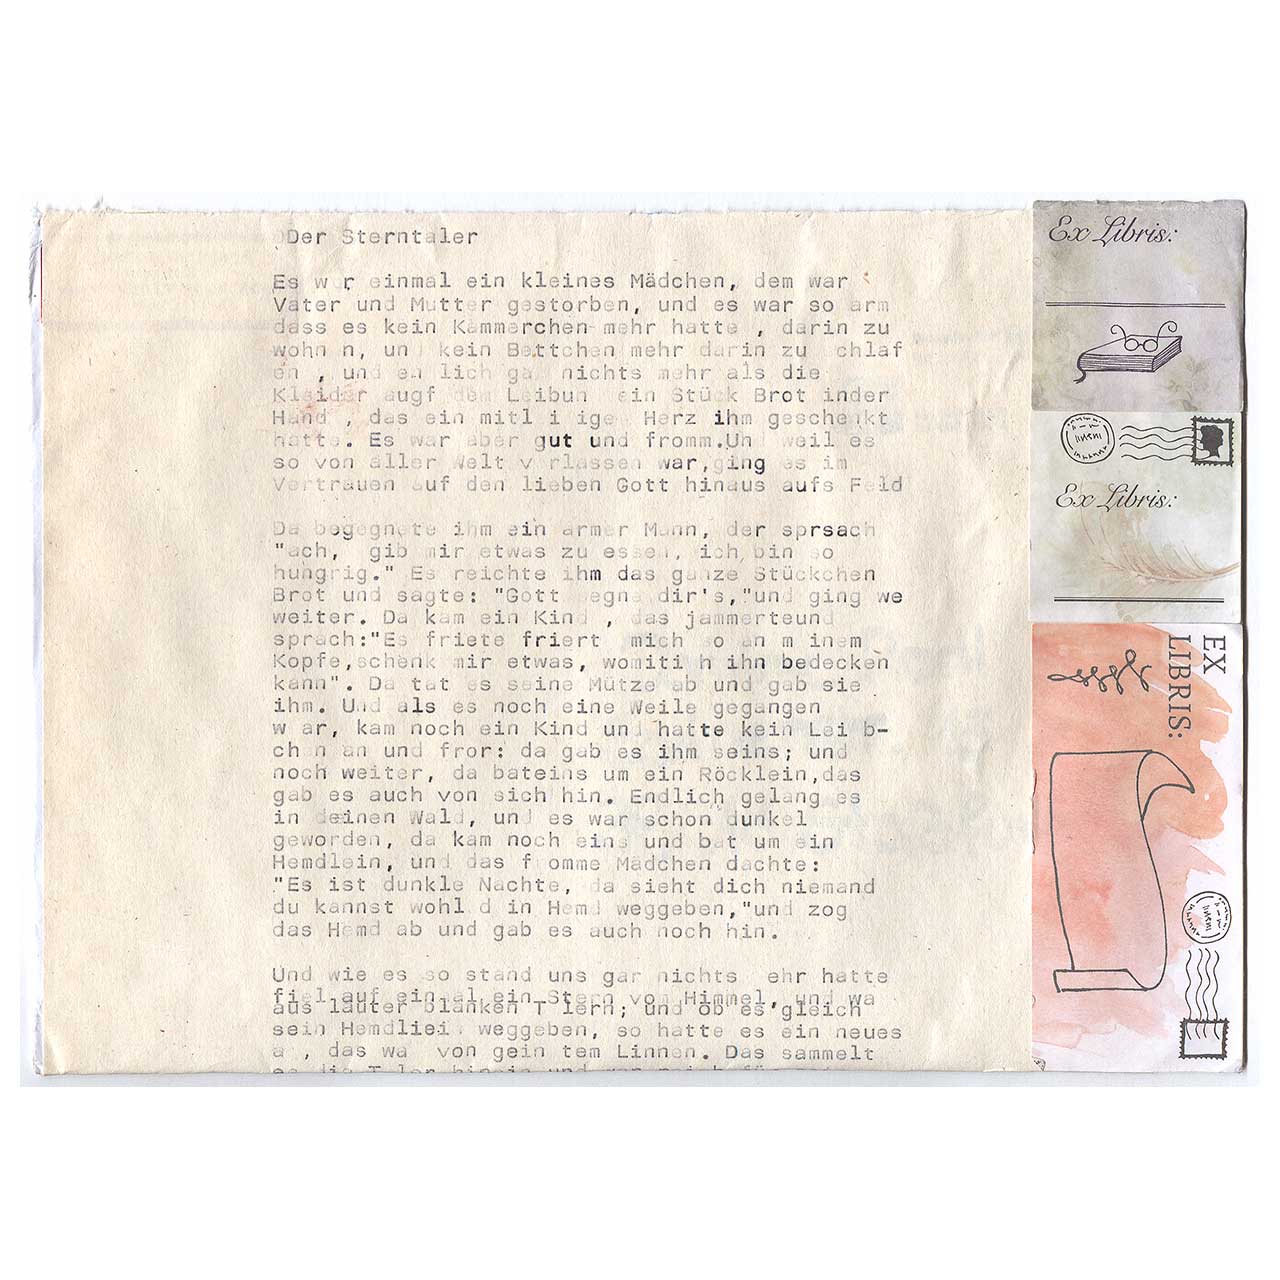 Der Sterntaler
Es war einmal ein kleines Mädchen, dem war
Vater und Mutter gestorben, und es war so arm
dass es kein Kammerchen mehr hatte , darin zu
wohn n, un kein Bettchen mehr darin zu chlaf
en , und en lich ga nichts mehr als die
Kleider augf dem Leibun ein Stück Brot inder
Hand , das ein mitl i ige Herz ihm geschenkt
hatte. Es war aber gut und fromm.Un weil es
so von aller Welt v rlassen war,ging es im
Vertrauen auf den lieben Gott hinaus aufs Feld
Da begegnete ihm ein armer Mann, der sprsach
"ach, gib mir etwas zu essen, ich bin so
hungrig." Es reichte ihm das ganze Stückchen
Brot und sagte: "Gott segne dir's,"und ging we
weiter. Da kam ein Kind , das jammerteund
sprach:"Es friete friert mich so an m inem
Kopfe,schenk mir etwas, womiti h ihn bedecken
kann". Da tat es seine Mütze ab und gab sie
ihm. Und als es noch eine Weile gegangen
w ar, kam noch ein Kind und hatte kein Lei b-
chen an und fror: da gab es ihm seins; und
noch weiter, da bateins um ein Röcklein,das
gab es auch von sich hin. Endlich gelang es
in deinen Wald, und es war schon dunkel
geworden, da kam noch eins und bat um ein
Hemdlein, und das f omme Mädchen dachte:
"Es ist dunkle Nachte, da sieht dich niemand
du kannst wohl d in Hemd weggeben,"und zog
das Hemd ab und gab es auch noch hin.
Und wie es so stand uns gar nichts ehr hatte
fiel auf einmal ein Stern vom Himmel, und wa
aus lauter blanken T lern; und ob es gleich
sein Hemdliei weggeben, so hatte es ein neues
a , das wa von gein tem Linnen. Das sammelt
Ex Libris:
Ex Libris:
EX
LIBRIS: